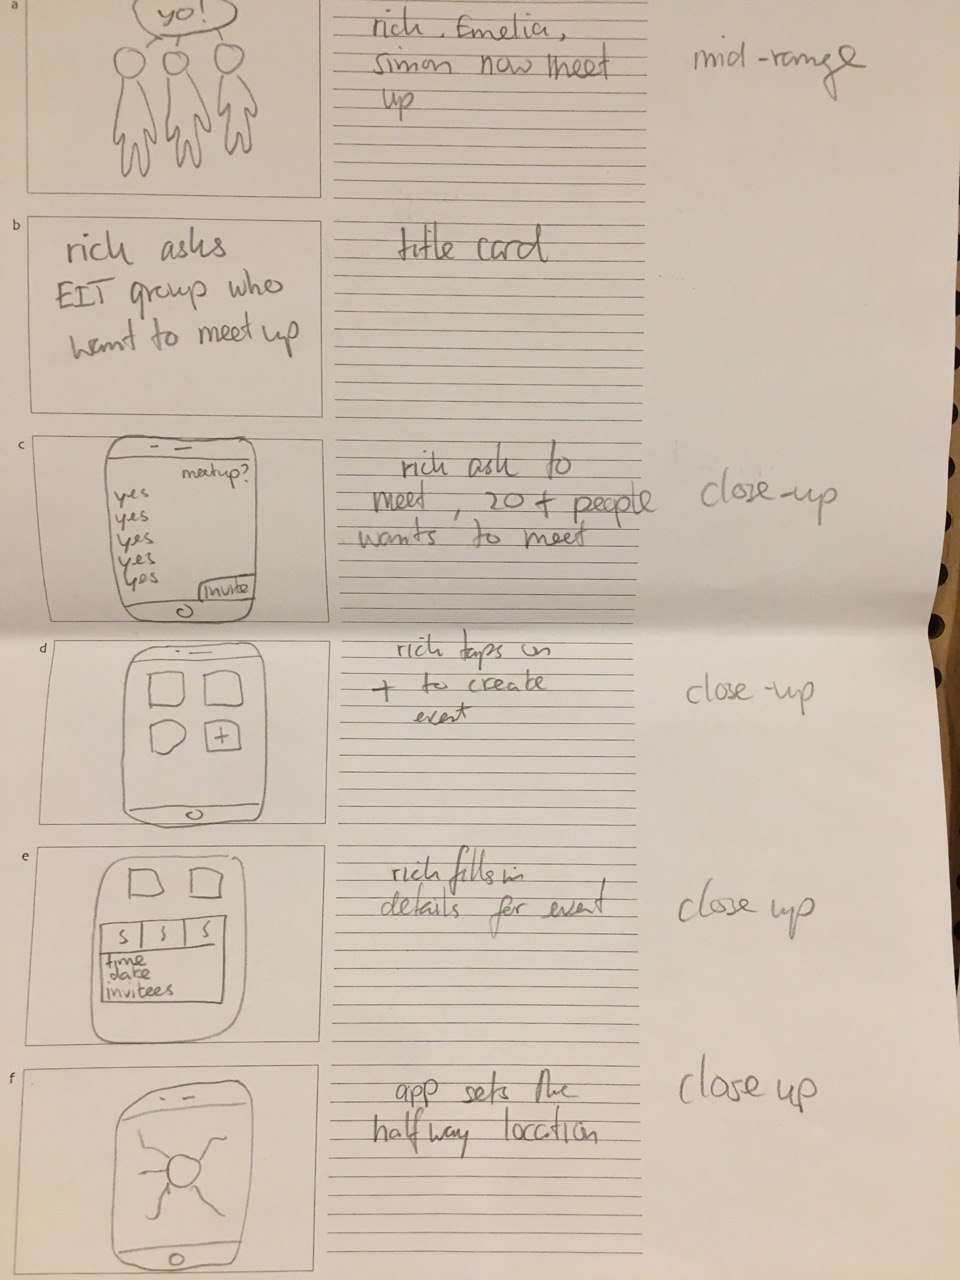 a
yo!
rich, Emelia,
simon now meet
up
mid-range
b
rich asks
EIT group who
want to meet up
title card
c
meetup?
yes
yes
yes
yes
yes
invite
rich ask to
meet, 20+ people
wants to meet
close-up
d
+
rich taps on
+ to create
event
close-up
e
S S S
time
date
invitees
rich fills in
details for event
close up
f
app sets the
halfway location
close up